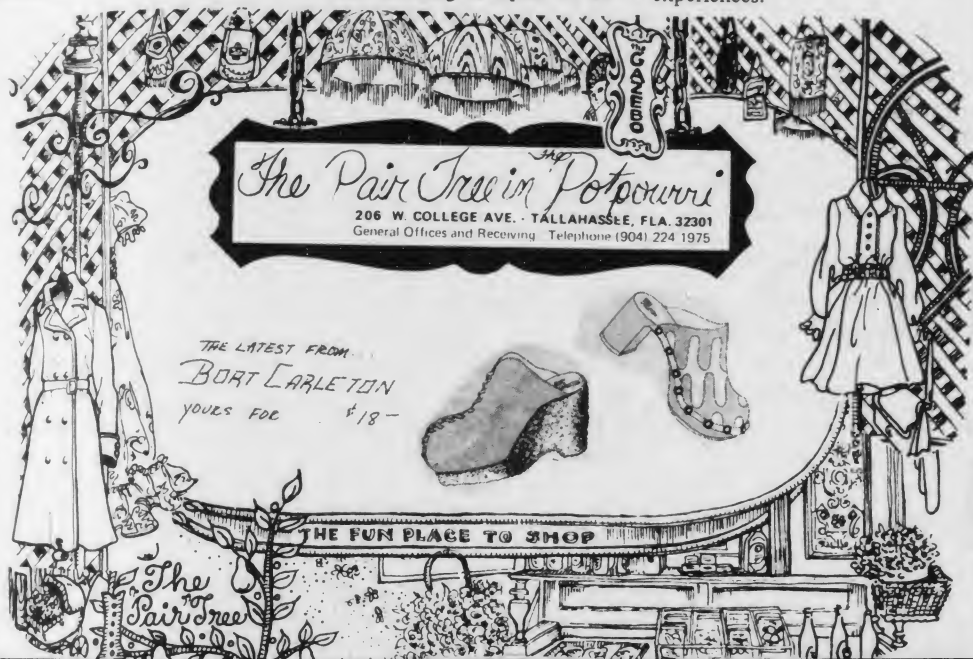 experiences.
The
GAZEBO
The Pair Tree in the Potpourri
206 W. COLLEGE AVE. · TALLAHASSEE, FLA. 32301
General Offices and Receiving Telephone (904) 224 1975
THE LATEST FROM
BORT CARLETON
YOURS FOR $18-
THE FUN PLACE TO SHOP
The
Pair Tree